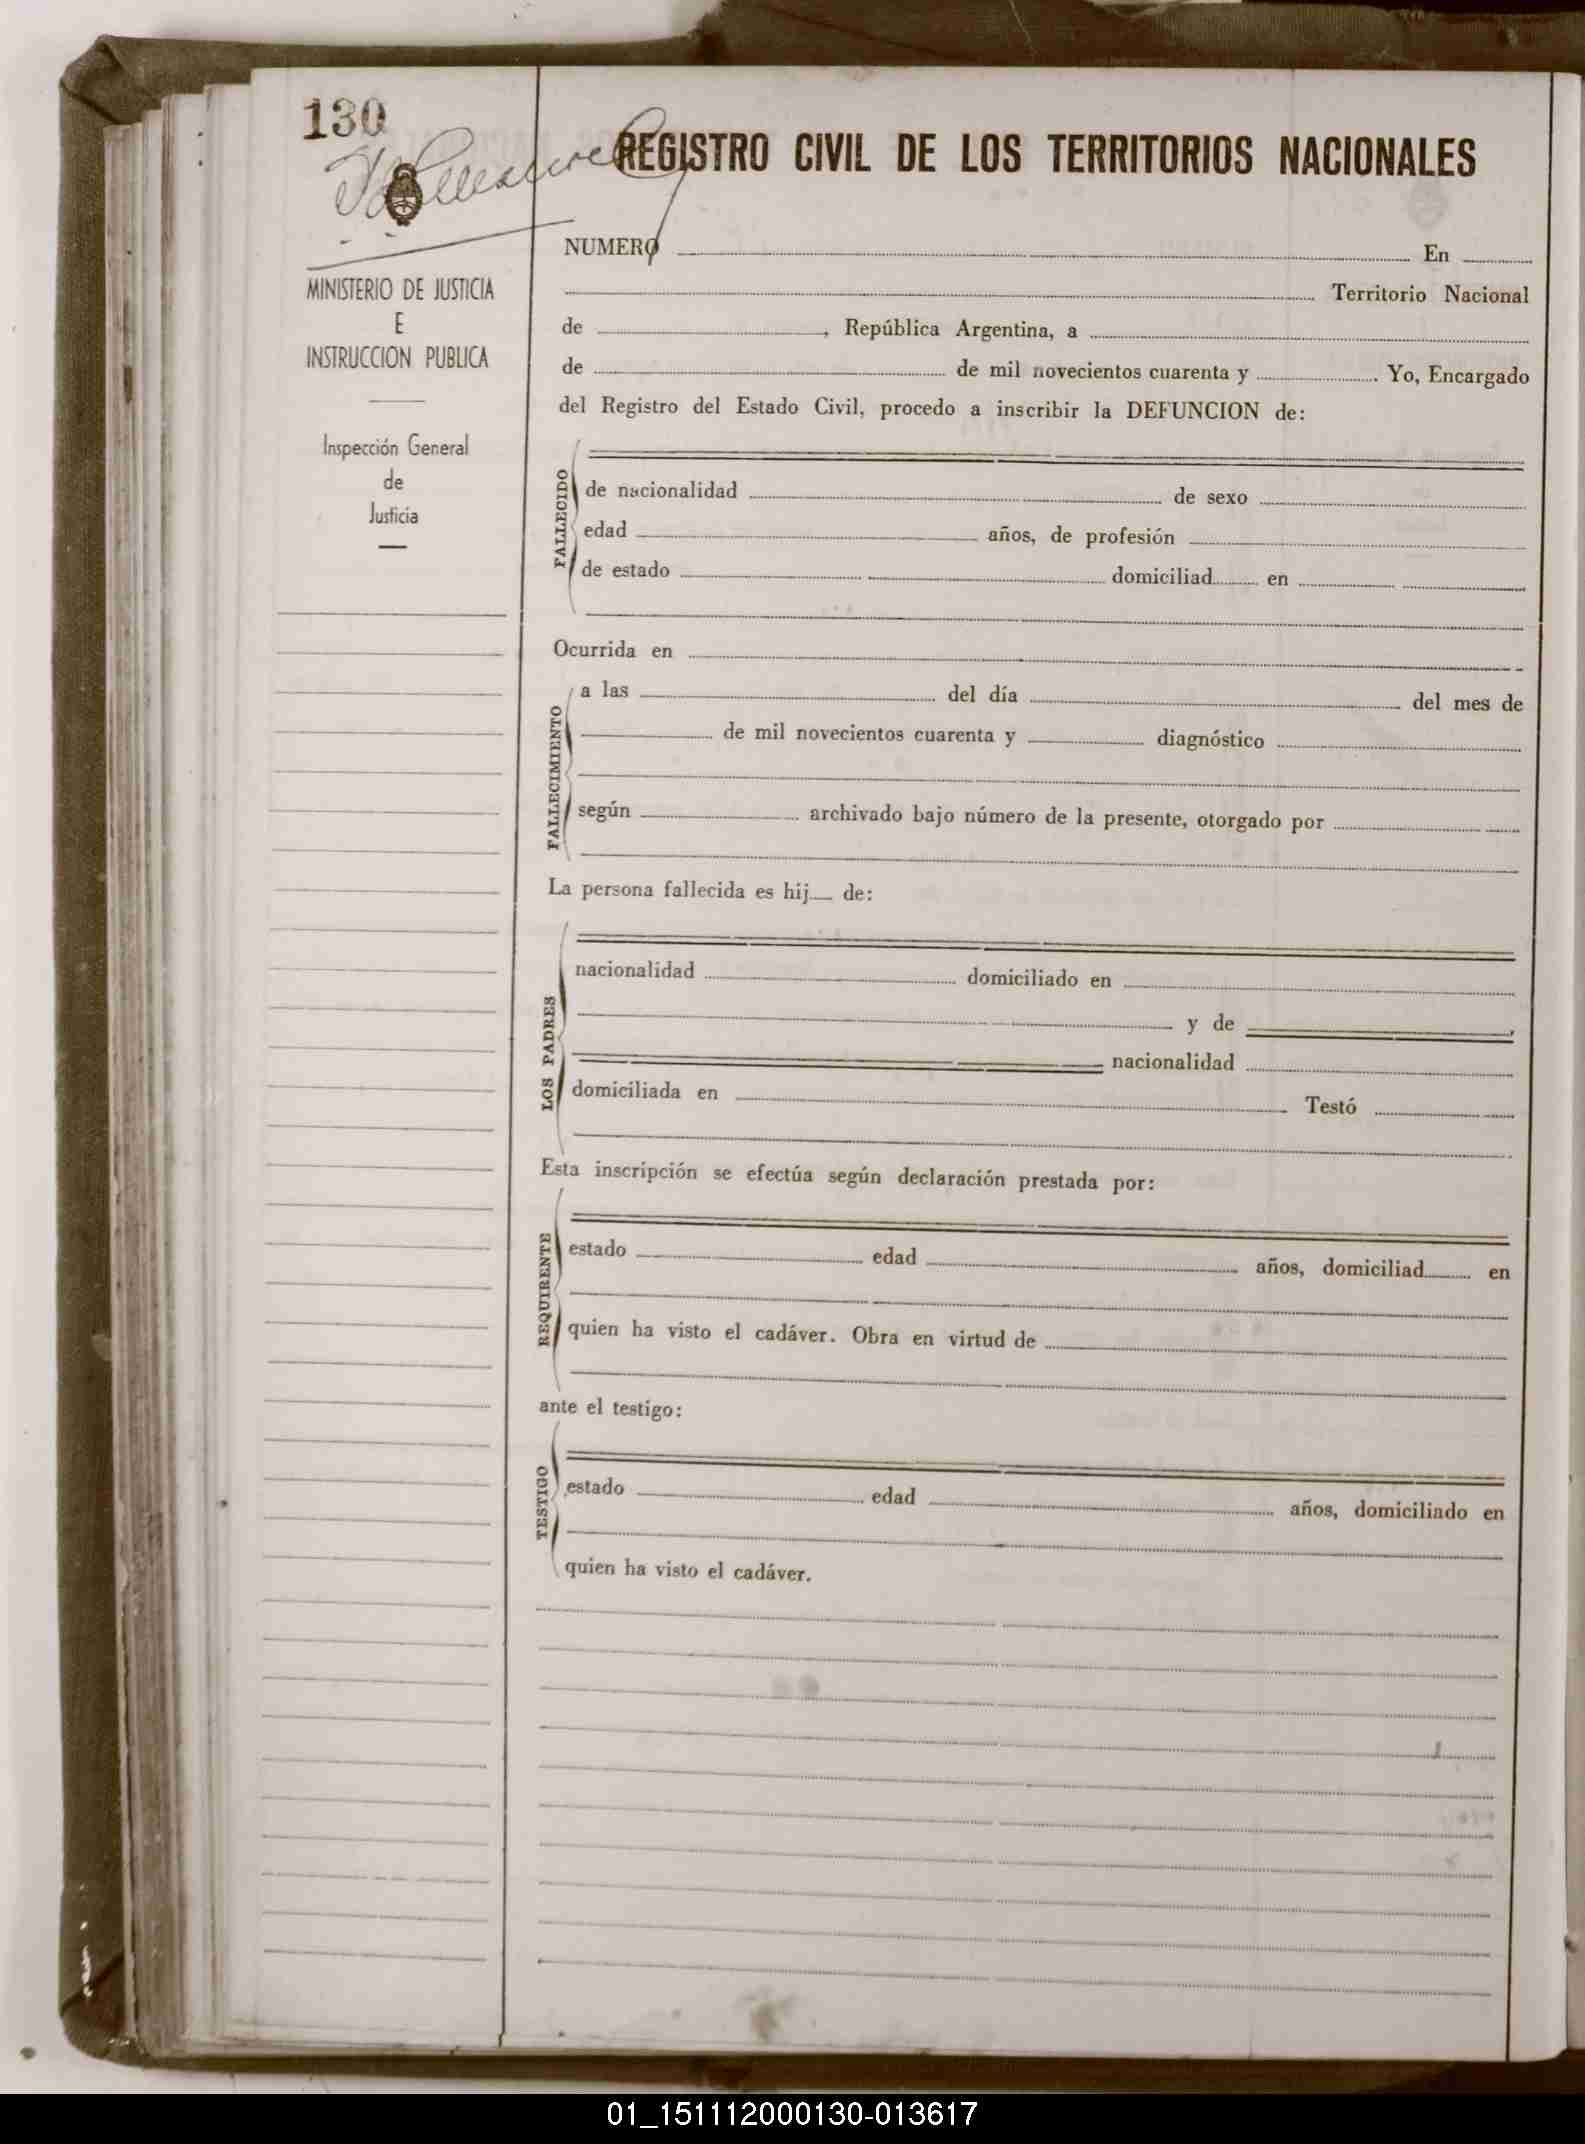 130
REGISTRO CIVIL DE LOS TERRITORIOS NACIONALES
MINISTERIO DE JUSTICIA
E
INSTRUCCION PUBLICA
Inspección General
de
Justicia
NUMERO En
Territorio Nacional
de , República Argentina, a
de de mil novecientos cuarenta y . Yo, Encargado
del Registro del Estado Civil, procedo a inscribir la DEFUNCION de:
FALLECIDO
de nacionalidad de sexo
edad años, de profesión
de estado domiciliad en
Ocurrida en
FALLECIMIENTO
a las del día del mes de
de mil novecientos cuarenta y diagnóstico
según archivado bajo número de la presente, otorgado por
La persona fallecida es hij de:
LOS PADRES
nacionalidad domiciliado en
y de
nacionalidad
domiciliada en Testó
Esta inscripción se efectúa según declaración prestada por:
REQUIRENTE
estado edad años, domiciliad en
quien ha visto el cadáver. Obra en virtud de
ante el testigo:
TESTIGO
estado edad años, domiciliado en
quien ha visto el cadáver.
01_151112000130-013617